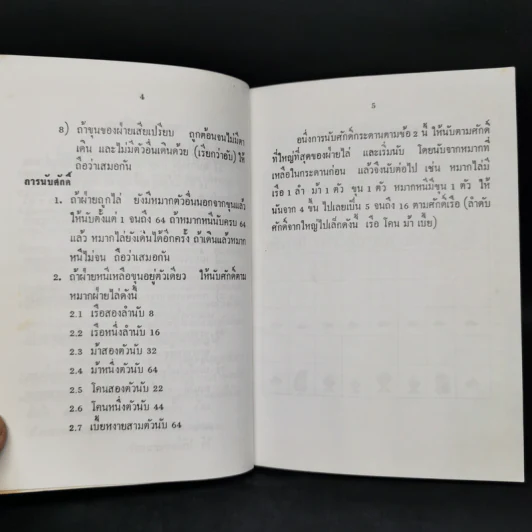 4
8) ถ้าขุนของฝ่ายเสียเปรียบ ถูกต้อนจนไม่มีตา
เดิน และไม่มีตัวอื่นเดินด้วย (เรียกว่าอับ) ให้
ถือว่าเสมอกัน
การนับศักดิ์
1. ถ้าฝ่ายถูกไล่ ยังมีหมากตัวอื่นนอกจากขุนแล้ว
ให้นับตั้งแต่ 1 จนถึง 64 ถ้าหมากหนีนับครบ 64
แล้ว หมากไล่ยังเดินได้อีกครั้ง ถ้าเดินแล้วหมาก
หนีไม่จน ถือว่าเสมอกัน
2. ถ้าฝ่ายหนีเหลือขุนอยู่ตัวเดียว ให้นับศักดิ์ตาม
หมากฝ่ายไล่ดังนี้
2.1 เรือสองลำนับ 8
2.2 เรือหนึ่งลำนับ 16
2.3 ม้าสองตัวนับ 32
2.4 ม้าหนึ่งตัวนับ 64
2.5 โคนสองตัวนับ 22
2.6 โคนหนึ่งตัวนับ 44
2.7 เบี้ยหงายสามตัวนับ 64
5
อนึ่งการนับศักดิ์กระดานตามข้อ 2 นี้ ให้นับตามศักดิ์
ที่ใหญ่ที่สุดของฝ่ายไล่ และเริ่มนับ โดยนับจากหมากที่
เหลือในกระดานก่อน แล้วจึงนับต่อไป เช่น หมากไล่มี
เรือ 1 ลำ ม้า 1 ตัว ขุน 1 ตัว หมากหนีมีขุน 1 ตัว ให้
นับจาก 4 ขึ้นไปเลยเป็น 5 จนถึง 16 ตามศักดิ์เรือ (ลำดับ
ศักดิ์จากใหญ่ไปเล็กดังนี้ เรือ โคน ม้า เบี้ย)